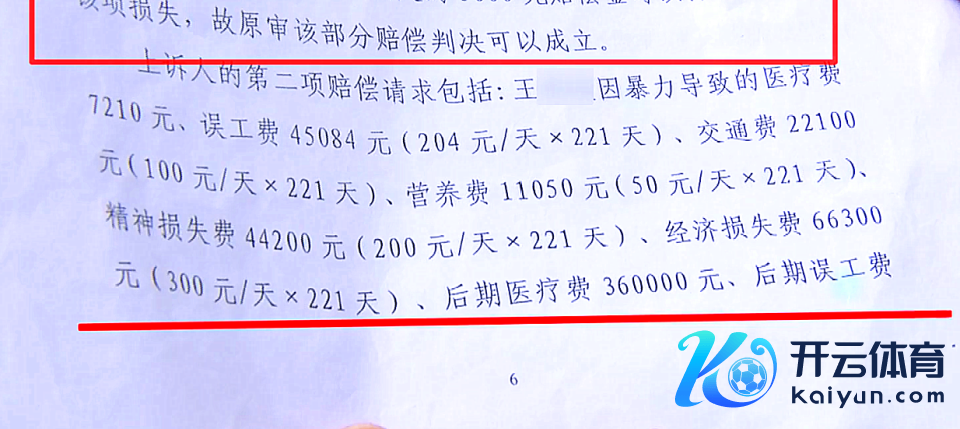 该项损失，故原审该部分赔偿判决可以成立。
上诉人的第二项赔偿请求包括：王 因暴力导致的医疗费
7210 元、误工费 45084 元（204 元/天×221 天）、交通费 22100
元（100 元/天×221 天）、营养费 11050 元（50 元/天×221 天）、
精神损失费 44200 元（200 元/天×221 天）、经济损失费 66300
元（300 元/天×221 天）、后期医疗费 360000 元、后期误工费
6
开云体育
kaiyun.com